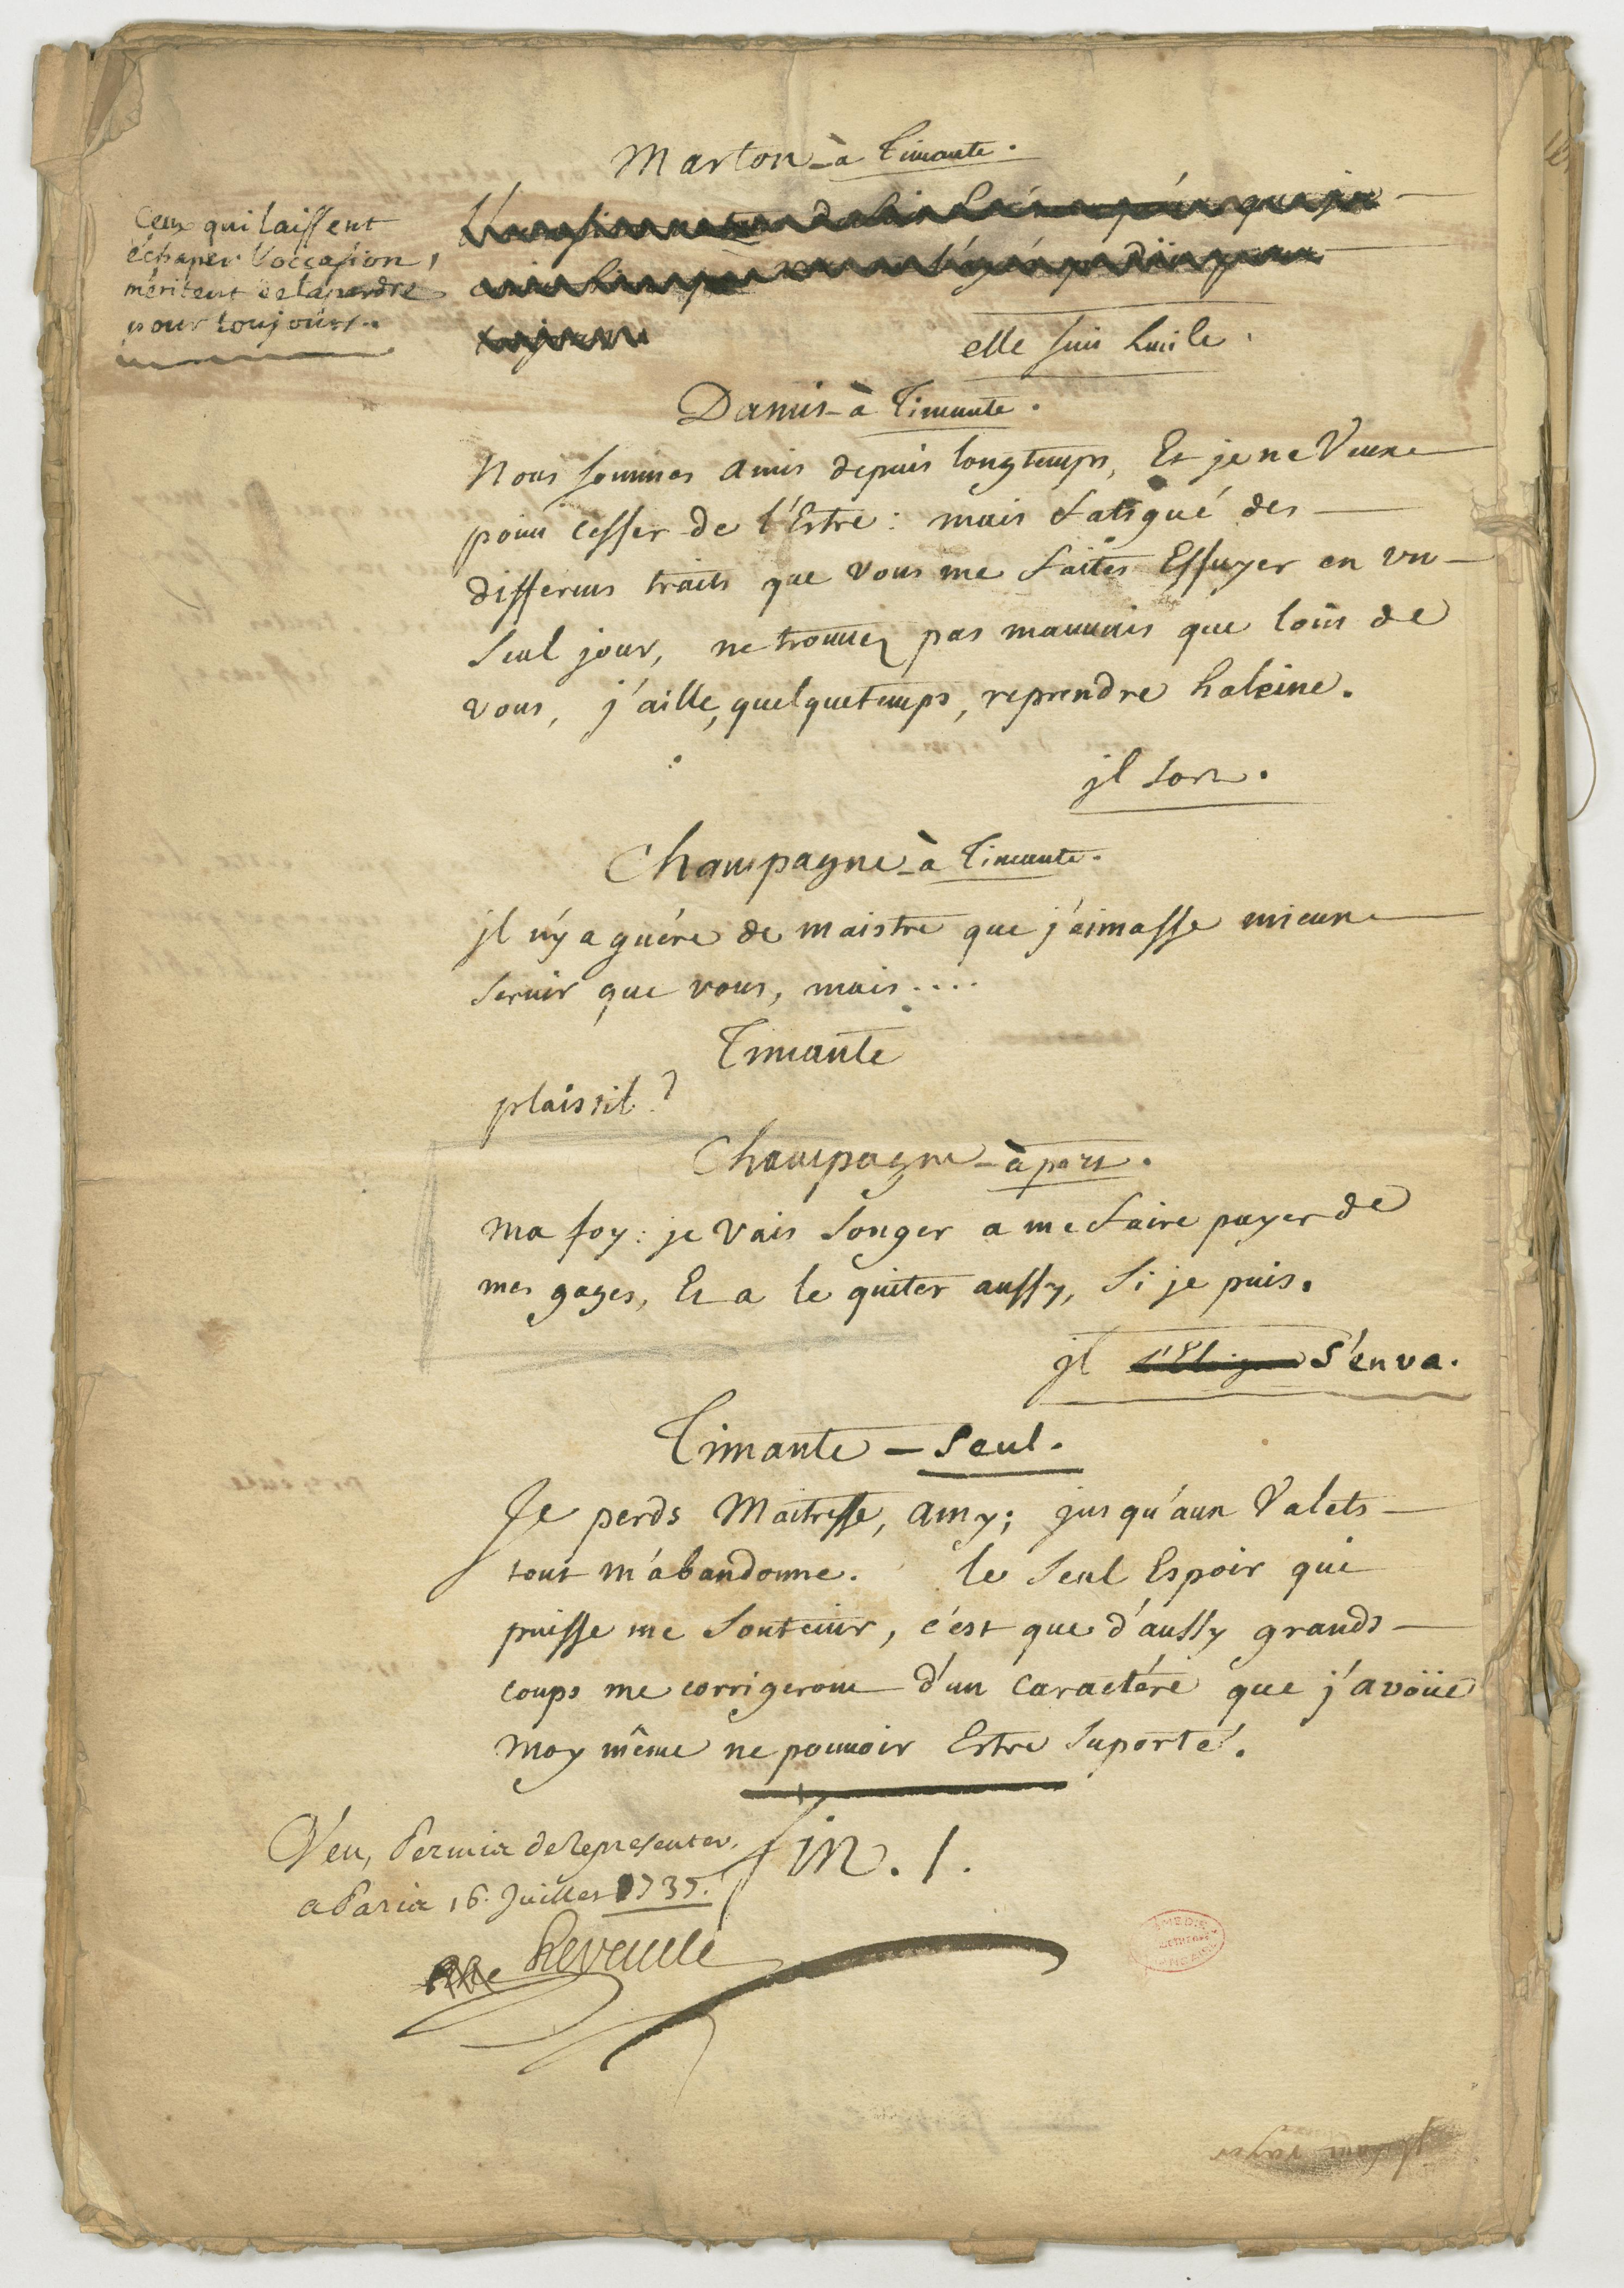 Marton - à Timante.
Ceux qui laissent
échaper l'occasion,
méritent de la perdre
pour toujours.
elle suit Lucile.
Damis - à Timante.
Nous sommes amis depuis longtemps, Et je ne Veux
point cesser de l'Estre : mais fatigué des
differens traits que vous me faites Essuyer en un
seul jour, ne trouvez pas mauvais que loin de
vous, j'aille, quelque temps, reprendre haleine.
jl sort.
Champagne - à Timante.
jl n'y a guére de maistre que j'aimasse mieux
servir que vous, mais....
Timante
plaist il ?
Champagne - à part.
ma foy : je vais songer a me faire payer de
mes gages, Et a le quiter aussy, si je puis.
jl s'Eloigne s'en va.
Timante - seul.
Je perds Maitresse, amy ; jusqu'aux Valets
tout m'abandonne. le seul Espoir qui
puisse me soutenir, c'est que d'aussy grands
coups me corrigeront d'un caractére que j'avoüe
moy même ne pouvoir Estre suporté.
Fin. /.
Veu, Permis de representer.
a Paris 16. Juillet 1737.